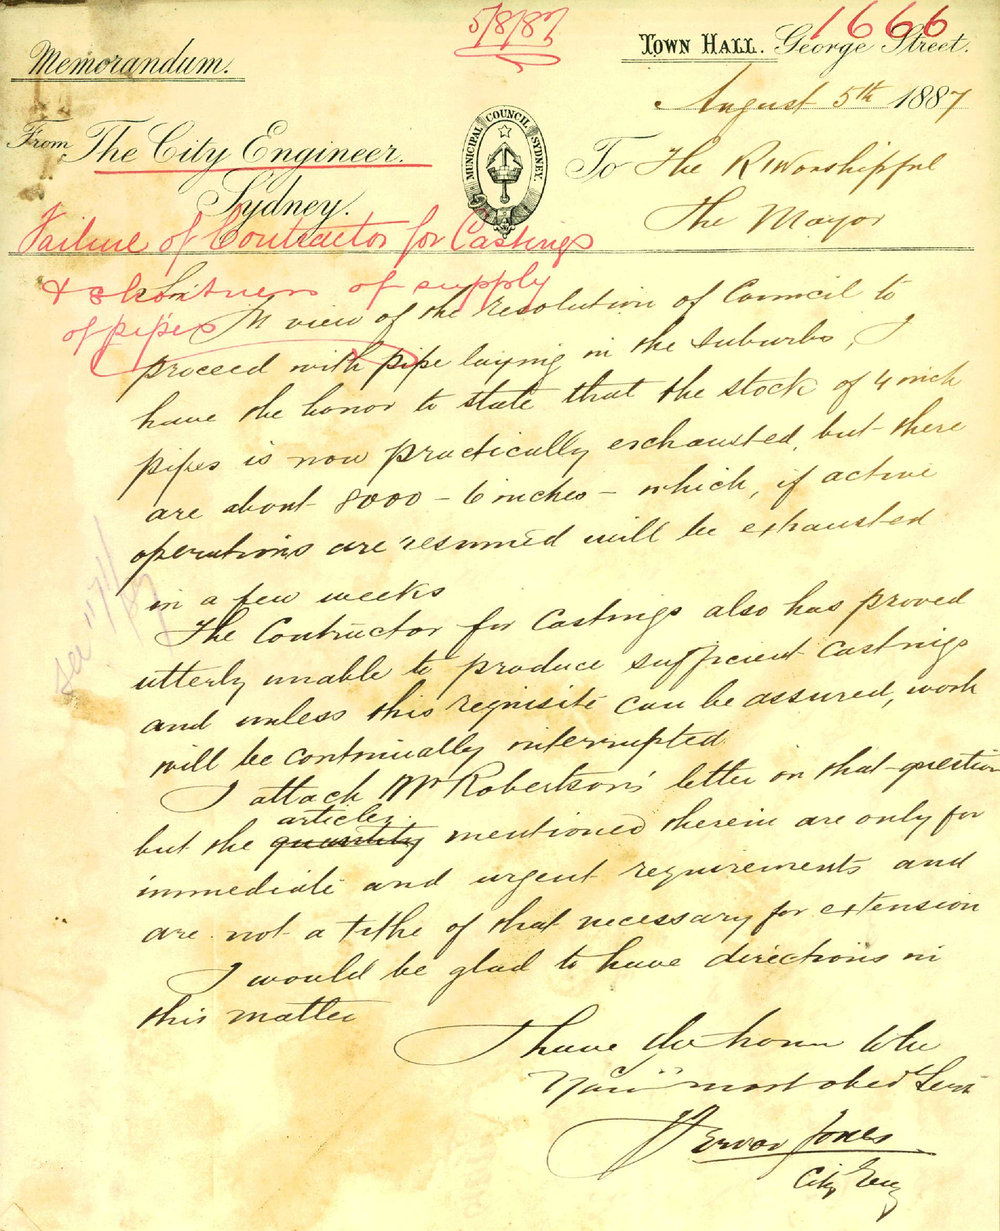 5/8/87
1666
Memorandum.
TOWN HALL. George Street.
August 5th 1887
From The City Engineer.
Sydney.
MUNICIPAL COUNCIL SYDNEY.
To The Rt Worshipful
The Mayor
Failure of Contractor for Castings
& shortness of supply
of pipes
Sir
In view of the resolution of Council to
proceed with pipe laying in the suburbs, I
have the honor to state that the stock of 4 inch
pipes is now practically exhausted, but there
are about 8000 - 6 inches - which, if active
operations are resumed will be exhausted
in a few weeks
The Contractor for Castings also has proved
utterly unable to produce sufficient castings
and unless this requisite can be assured, work
will be continually interrupted
I attach Mr Robertson's letter on that question
articles
but the quantity mentioned therein are only for
immediate and urgent requirements and
are not a tithe of that necessary for extension
I would be glad to have directions in
this matter
I have the honor to be
Your most obedt Servt
Trevor Jones
City Eng
see